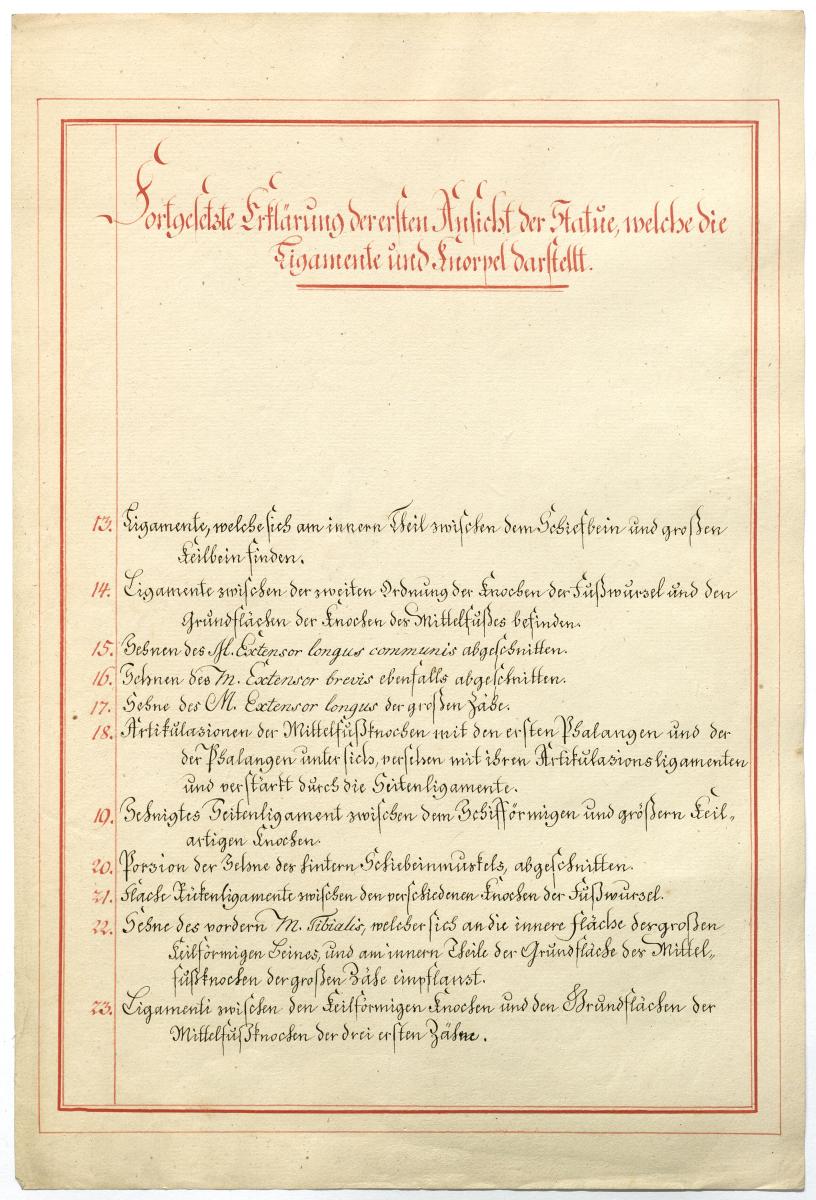 Fortgesetzte Erklärung der ersten Ansicht der Statue, welche die
Ligamente und Knorpel darstellt.
13. Ligamente, welche sich am innern Theil zwischen dem Schiefbein und großen
Keilbein finden.
14. Ligamente zwischen der zweiten Ordnung der Knochen der Fußwurzel und den
Grundflächen der Knochen des Mittelfußes befinden.
15. Sehnen des M. Extensor longus communis abgeschnitten.
16. Sehnen des M. Extensor brevis ebenfalls abgeschnitten.
17. Sehne des M. Extensor longus der großen Zähe.
18. Artikulazionen der Mittelfußknochen mit den ersten Phalangen und der
der Phalangen unter sich, versehen mit ihren Artikulazionsligamenten
und verstärkt durch die Seitenligamente.
19. Sehnigtes Seitenligament zwischen dem Schiffförmigen und größern Keil-
artigen Knochen.
20. Porzion der Sehne des hintern Schiebeinmuskels, abgeschnitten.
21. Flache Rükenligamente zwischen den verschiedenen Knochen der Fußwurzel.
22. Sehne des vordern M. Tibialis, welcher sich an die innere Fläche der großen
Keilförmigen Beines, und am innern Theile der Grundfläche der Mittel-
fußknochen der großen Zähe einpflanzt.
23. Ligamenti zwischen den Keilförmigen Knochen und den Grundflächen der
Mittelfußknochen der drei ersten Zähne.